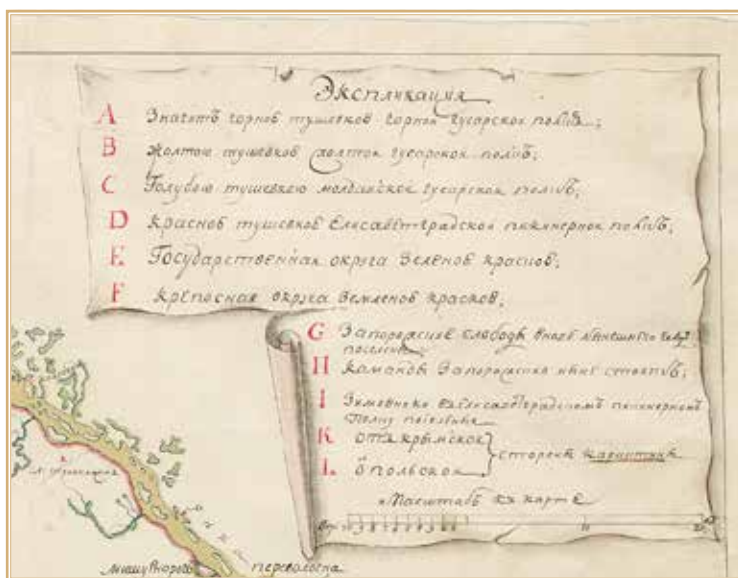 Экспликация
A Значитъ чорною тушевкою чорной гусарской полкъ;
B Жолтою тушевкою жолтой гусарской полкъ;
C Голубою тушевкою молдавской гусарской полкъ;
D Красною тушевкою Елисаветградской пикинерной полкъ;
E Государственная округа зеленою краскою;
F Крепосная округа земленою краскою;
G Запорожские слободы вновь нынешнего году
поселены
H Команда Запорожская ныне стоитъ;
I Зимовники въ Елисаветградскомъ пикинерномъ
полку поселены
K отъ крымской
L о польской
стороны карантины
Масштабъ къ карте
10 9 8 7 6 5 4 3 2 1 10 20
Мишурной Переволочна